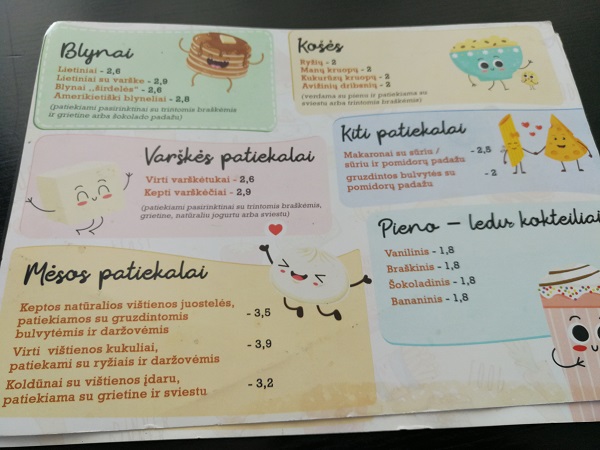 Blynai
Lietiniai - 2,6
Lietiniai su varške - 2,9
Blynai „širdelės" - 2,6
Amerikietiški blyneliai - 2,8
(patiekiami pasirinktinai su trintomis braškėmis
ir grietine arba šokolado padažu)
Košės
Ryžių - 2
Manų kruopų - 2
Kukurūzų kruopų - 2
Avižinių dribsnių - 2
(verdama su pienu ir patiekiama su
sviestu arba trintomis braškėmis)
Varškės patiekalai
Virti varškėtukai - 2,6
Kepti varškėčiai - 2,9
(patiekiami pasirinktinai su trintomis braškėmis,
grietine, natūraliu jogurtu arba sviestu)
Kiti patiekalai
Makaronai su sūriu /
sūriu ir pomidorų padažu - 2,5
gruzdintos bulvytės su
pomidorų padažu - 2
Mėsos patiekalai
Keptos natūralios vištienos juostelės,
patiekiamos su gruzdintomis
bulvytėmis ir daržovėmis - 3,5
Virti vištienos kukuliai,
patiekami su ryžiais ir daržovėmis - 3,9
Koldūnai su vištienos įdaru,
patiekiama su grietine ir sviestu - 3,2
Pieno – ledų kokteiliai
Vanilinis - 1,8
Braškinis - 1,8
Šokoladinis - 1,8
Bananinis - 1,8